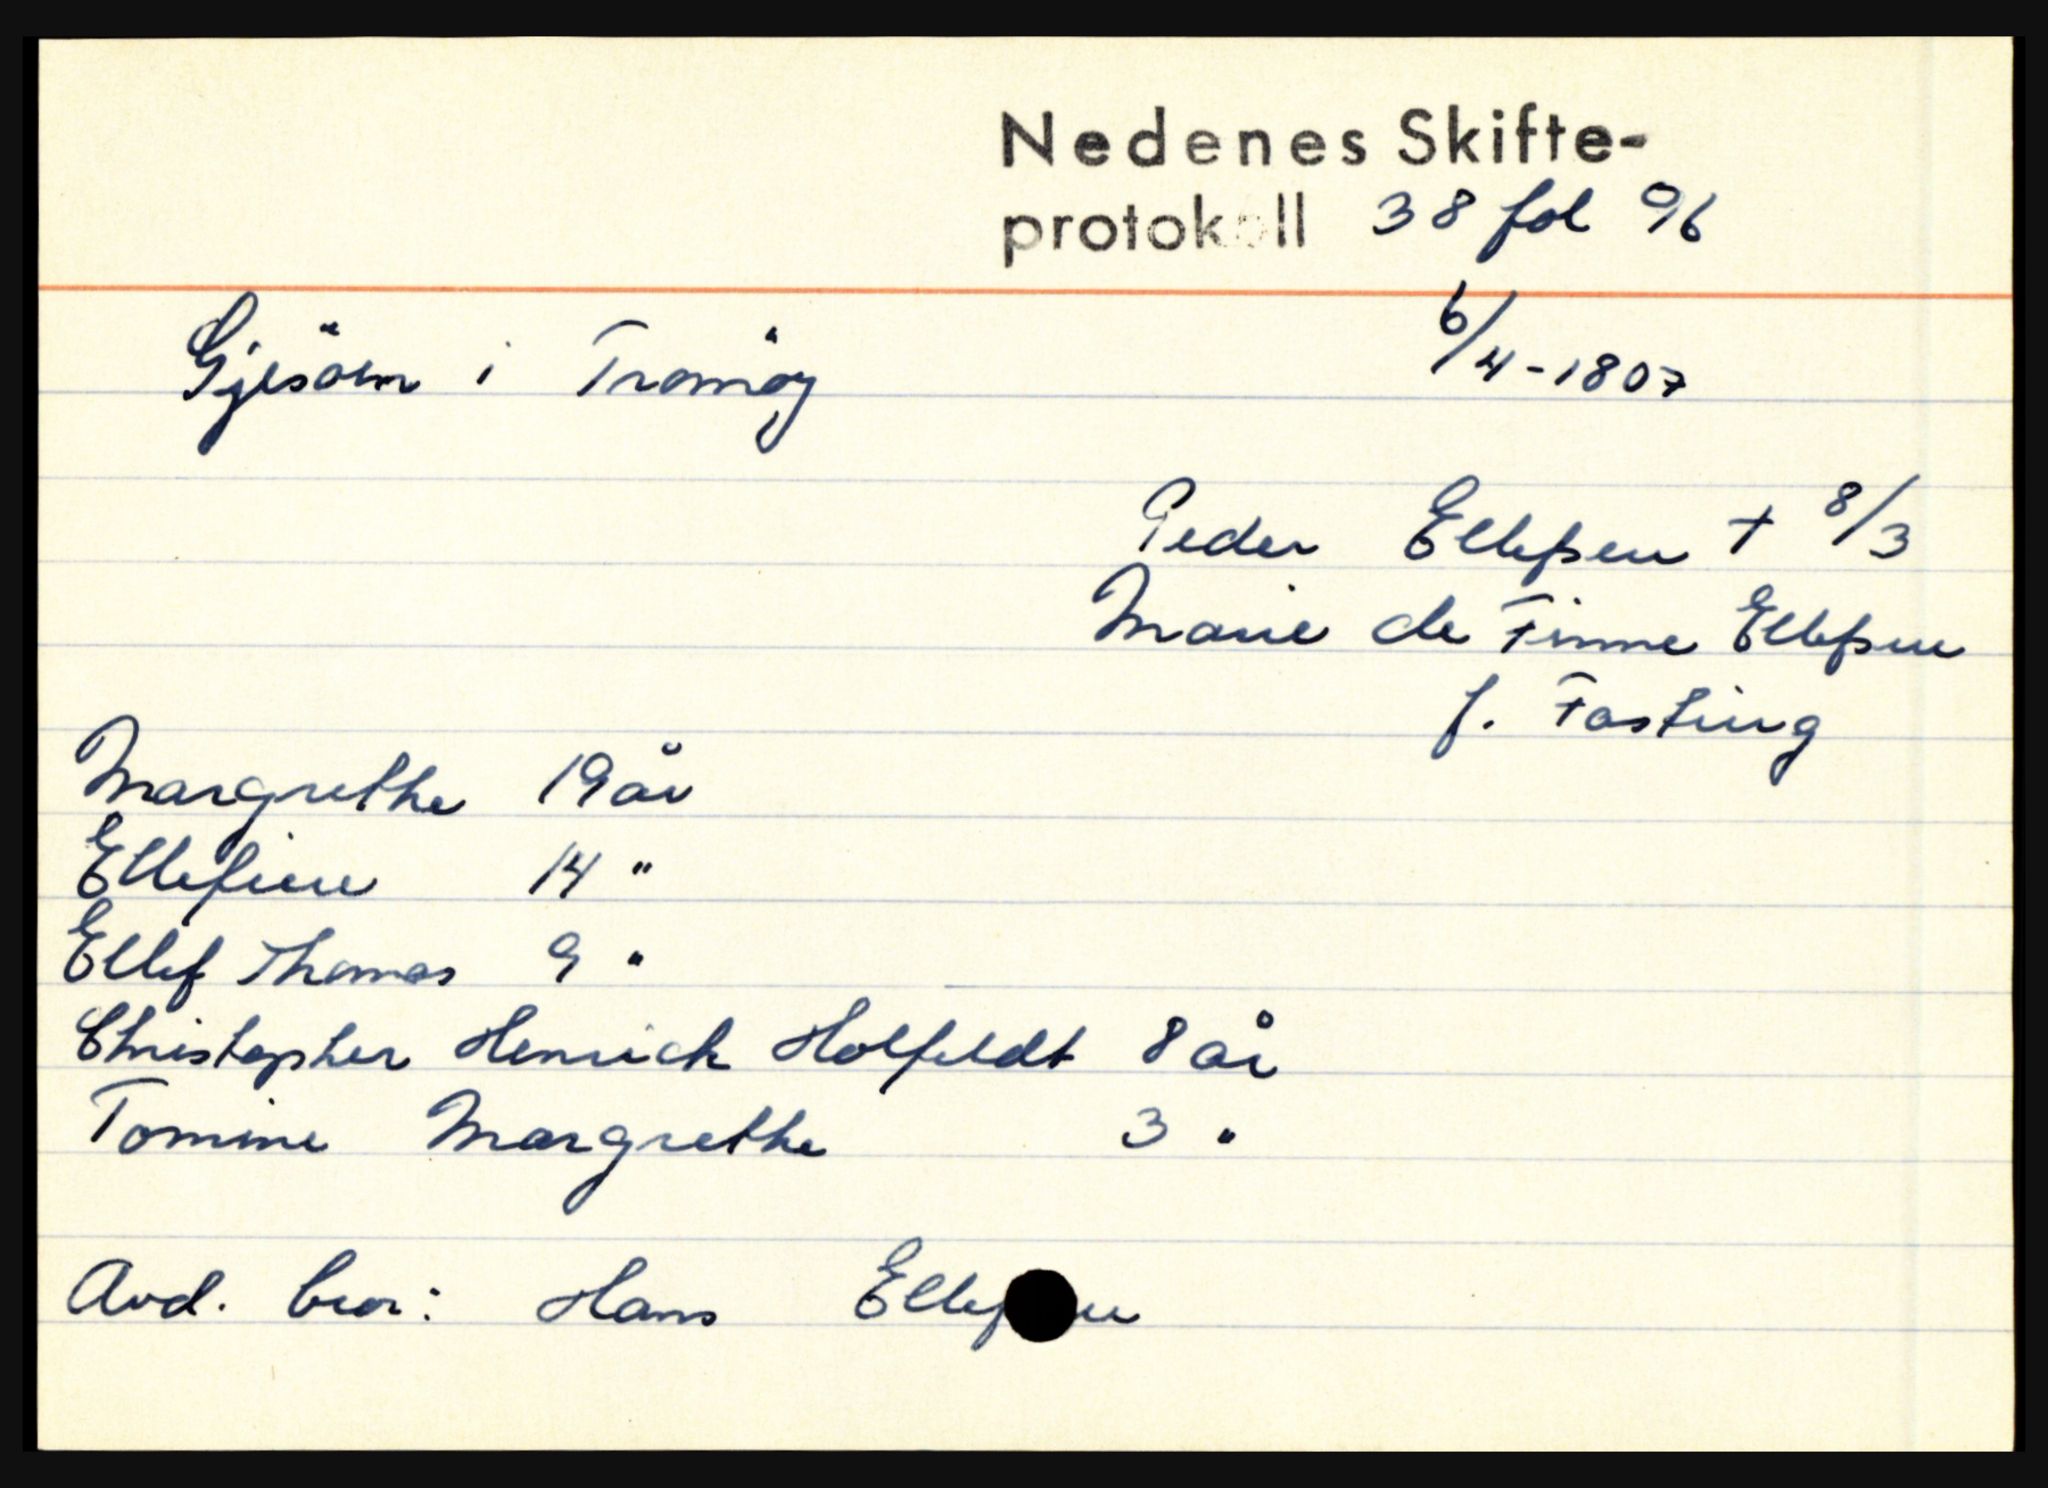 Nedenes Skifte-
protokoll 38 fol 96
Gjesöen i Tromöy 6/4-1807
Peder Ellefsen † 8/3
Marie de Finne Ellefsen
f. Fasting
Margrethe 19 år
Ellefine 14 "
Ellef Thomas 9 "
Christopher Henrick Holfeldt 8 år
Tomine Margrethe 3 "
Avd. bror: Hans